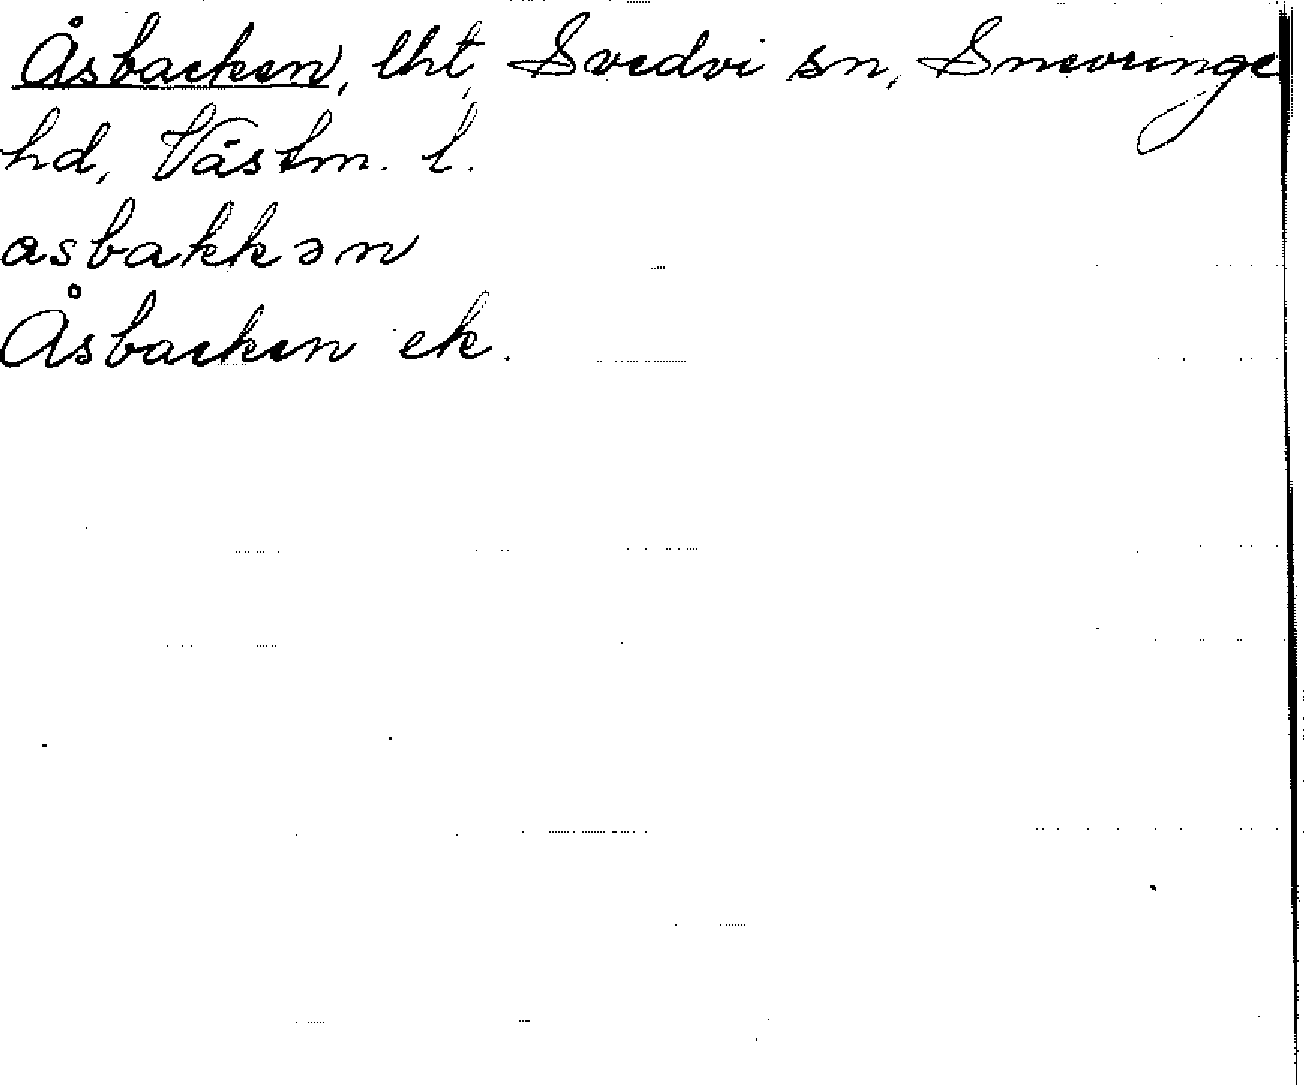 Åsbacken, lht, Svedvi sn, Snevringe
hd, Västm. l.
asbakkən
Åsbacken ek.